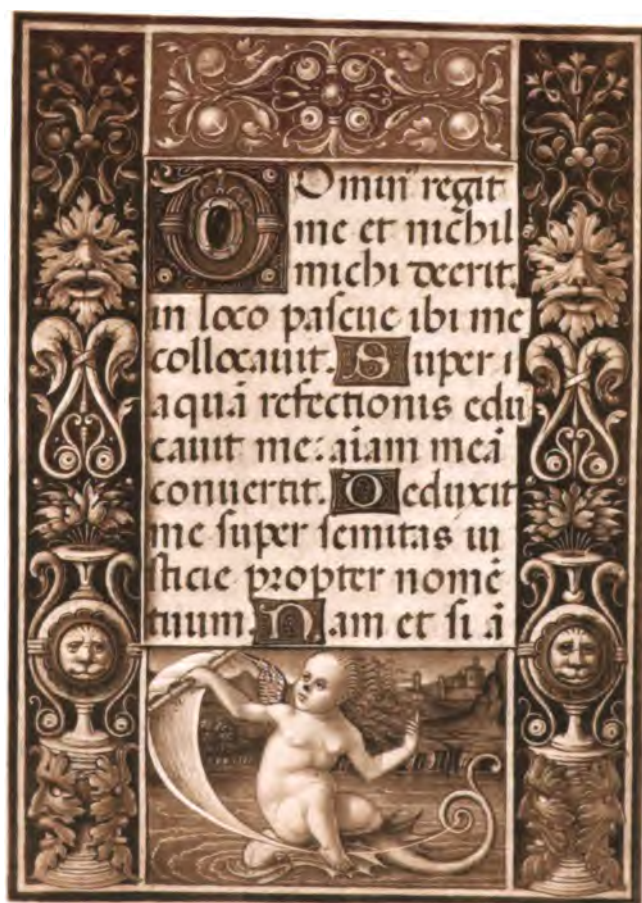 Dominꝰ regit
me et nichil
michi deerit.
in loco pascue ibi me
collocauit. Super
aquā refectionis edu
cauit me: aīam meā
conuertit. Deduxit
me super semitas iu
sticie propter nomē
tuum. Nam et si ā